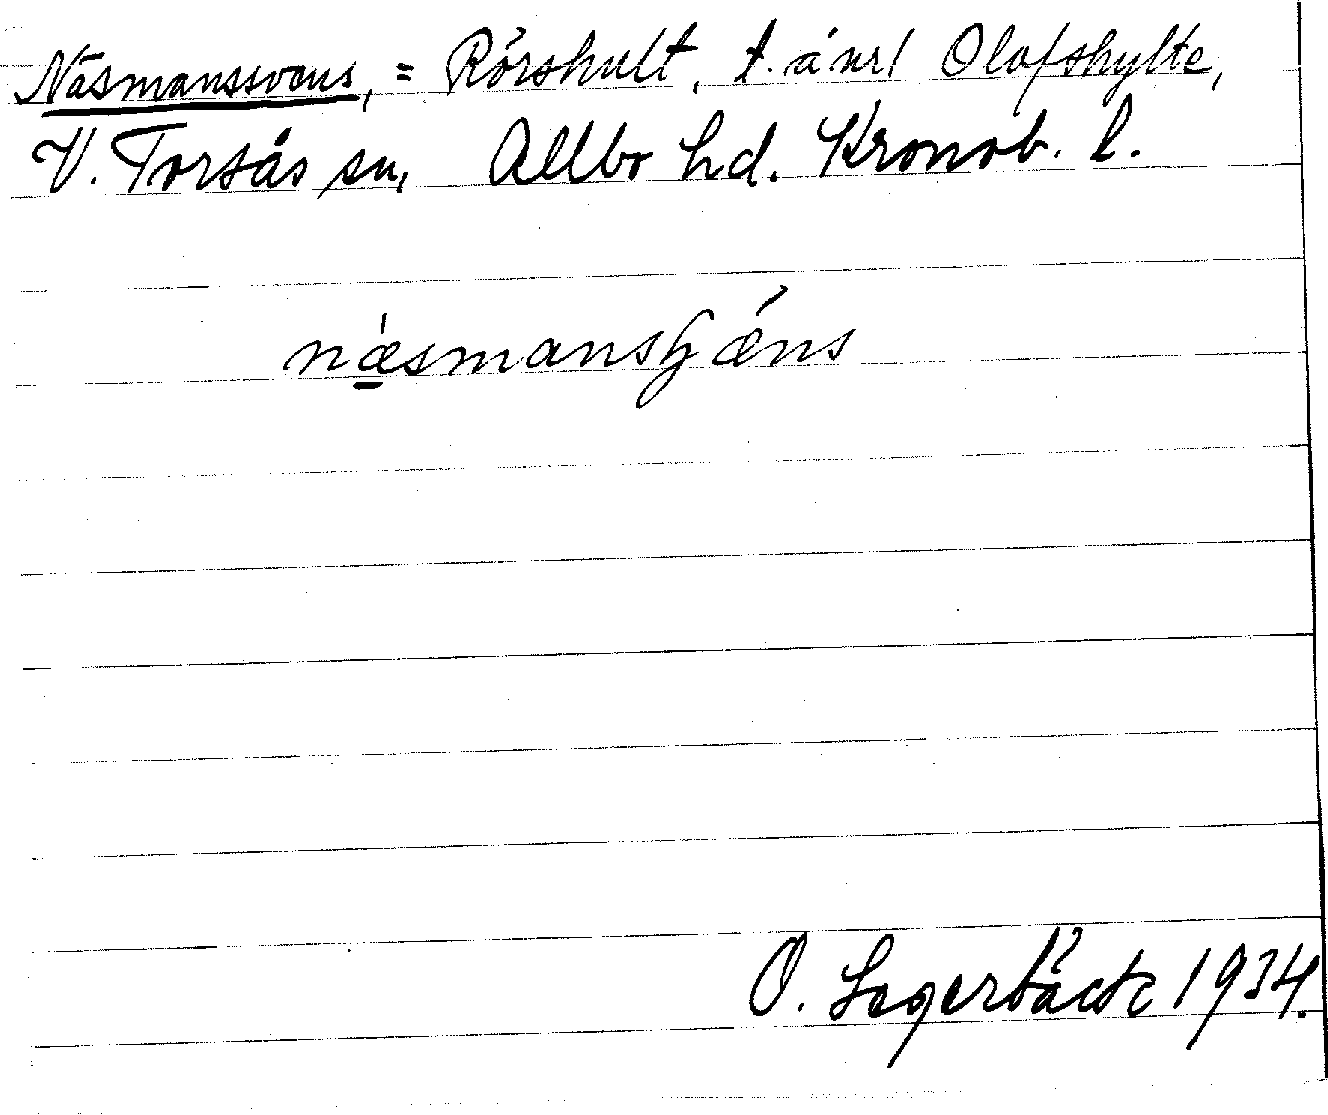 Näsmanssvens, = Rörshult, t. å nr 1 Olofshylte,
V. Torsås sn, Allbo hd. Kronob. l.
O. Lagerbäck 1934.